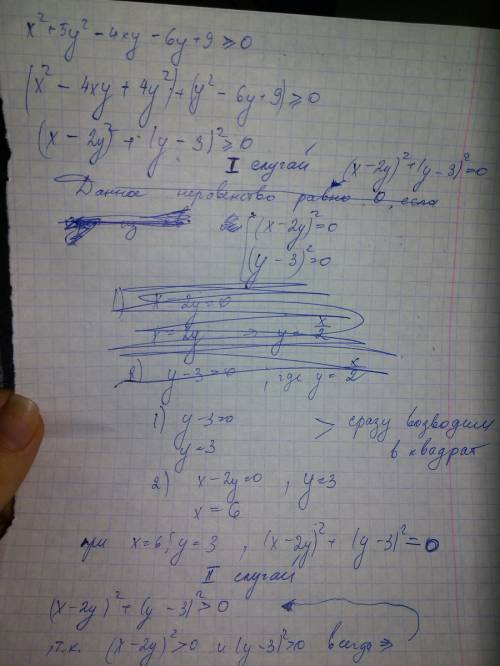 x² + 5y² - 4xy - 6y + 9 ≥ 0
(x² - 4xy + 4y²) + (y² - 6y + 9) ≥ 0
(x - 2y)² + (y - 3)² ≥ 0
I случай
(x - 2y)² + (y - 3)² = 0
Данное неравенство равно 0, если
(x - 2y)² = 0
(y - 3)² = 0
1) x - 2y = 0
x = 2y → y = x/2
2) y - 3 = 0, где y = x/2
1) y - 3 = 0
y = 3
> сразу возводим в квадрат
2) x - 2y = 0, y = 3
x = 6
при x = 6; y = 3, (x - 2y)² + (y - 3)² = 0
II случай
(x - 2y)² + (y - 3)² > 0
т.к. (x - 2y)² > 0 и (y - 3)² > 0 всегда ⇒